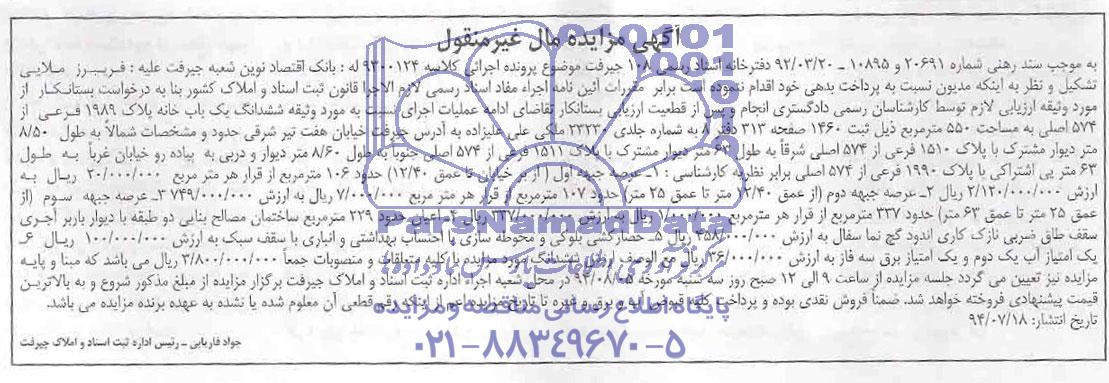 آگهی مزایده مال غیرمنقول
به موجب سند رهنی شماره ۲۰۶۹۱ و ۱۰۸۹۵ ـ ۹۲/۰۳/۲۰ دفترخانه اسناد رسمی ۱۰۸ جیرفت موضوع پرونده اجرائی کلاسه ۹۳۰۰۱۲۴ له : بانک اقتصاد نوین شعبه جیرفت علیه : فریبرز ملایی
تشکیل و نظر به اینکه مدیون نسبت به پرداخت بدهی خود اقدام ننموده است برابر مقررات آئین نامه اجراء مفاد اسناد رسمی لازم الاجرا قانون ثبت اسناد و املاک کشور بنا به درخواست بستانکار از
مورد وثیقه ارزیابی لازم توسط کارشناسان رسمی دادگستری انجام و پس از قطعیت ارزیابی بستانکار تقاضای ادامه عملیات اجرای نسبت به مورد وثیقه ششدانگ یک باب خانه پلاک ۱۹۸۹ فرعی از
۵۷۴ اصلی به مساحت ۵۵۰ مترمربع ذیل ثبت ۱۴۶۰ صفحه ۳۱۳ دفتر ۸ به شماره جلدی ۲۳۲۳۰ ملکی علی علیزاده به آدرس جیرفت خیابان هفت تیر شرقی حدود و مشخصات شمالاً به طول ۸/۵۰
متر دیوار مشترک با پلاک ۱۵۱۰ فرعی از ۵۷۴ اصلی شرقاً به طول ۶۳ متر دیوار مشترک با پلاک ۱۵۱۱ فرعی از ۵۷۴ اصلی جنوباً به طول ۸/۶۰ متر دیوار و دربی به پیاده رو خیابان غرباً به طول
۶۳ متر پی اشتراکی با پلاک ۱۹۹۰ فرعی از ۵۷۴ اصلی برابر نظریه کارشناسی : ۱ـ عرصه جبهه اول (از بر خیابان تا عمق ۱۲/۴۰) حدود ۱۰۶ مترمربع از قرار هر متر مربع ۲۰/۰۰۰/۰۰۰ ریال به
ارزش ۲/۱۲۰/۰۰۰/۰۰۰ ریال ۲ـ عرصه جبهه دوم (از عمق ۱۲/۴۰ متر تا عمق ۲۵ متر) حدود ۱۰۷ مترمربع از قرار هر متر مربع ۷/۰۰۰/۰۰۰ ریال به ارزش ۷۴۹/۰۰۰/۰۰۰ ۳ـ عرصه جبهه سوم (از
عمق ۲۵ متر تا عمق ۶۳ متر) حدود ۳۳۷ مترمربع از قرار هر مترمربع ۱/۰۰۰/۰۰۰ ریال به ارزش ۳۳۷/۰۰۰/۰۰۰ ریال ۴ـ اعیان حدود ۲۲۹ مترمربع ساختمان مصالح بنایی دو طبقه با دیوار باربر آجری
سقف طاق ضربی نازک کاری اندود گچ نما سفال به ارزش ۳۵۸/۰۰۰/۰۰۰ ریال ۵ـ حصارکشی بلوکی و محوطه سازی با احتساب بهداشتی و انباری با سقف سبک به ارزش ۱۰۰/۰۰۰/۰۰۰ ریال ۶ـ
یک امتیاز آب یک دوم و یک امتیاز برق سه فاز به ارزش ۳۶/۰۰۰/۰۰۰ ریال مع الوصف ارزش ششدانگ مورد مزایده با کلیه متعلقات و منصوبات جمعاً ۳/۸۰۰/۰۰۰/۰۰۰ ریال می باشد که مبنا و پایه
مزایده نیز تعیین می گردد جلسه مزایده از ساعت ۹ الی ۱۲ صبح روز سه شنبه مورخه ۹۴/۰۸/۰۵ در محل شعبه اجراء اداره ثبت اسناد و املاک جیرفت برگزار مزایده از مبلغ مذکور شروع و به بالاترین
قیمت پیشنهادی فروخته خواهد شد. ضمناً فروش نقدی بوده و پرداخت کلیه قبوض آب و برق و غیره تا تاریخ مزایده اعم از اینکه رقم قطعی آن معلوم شده یا نشده به عهده برنده مزایده می باشد.
تاریخ انتشار: ۹۴/۰۷/۱۸
جواد فاریابی ـ رئیس اداره ثبت اسناد و املاک جیرفت
ParsNamadData
پایگاه اطلاع رسانی مناقصه و مزایده
۰۲۱-۸۸۳۴۹۶۷۰-۵